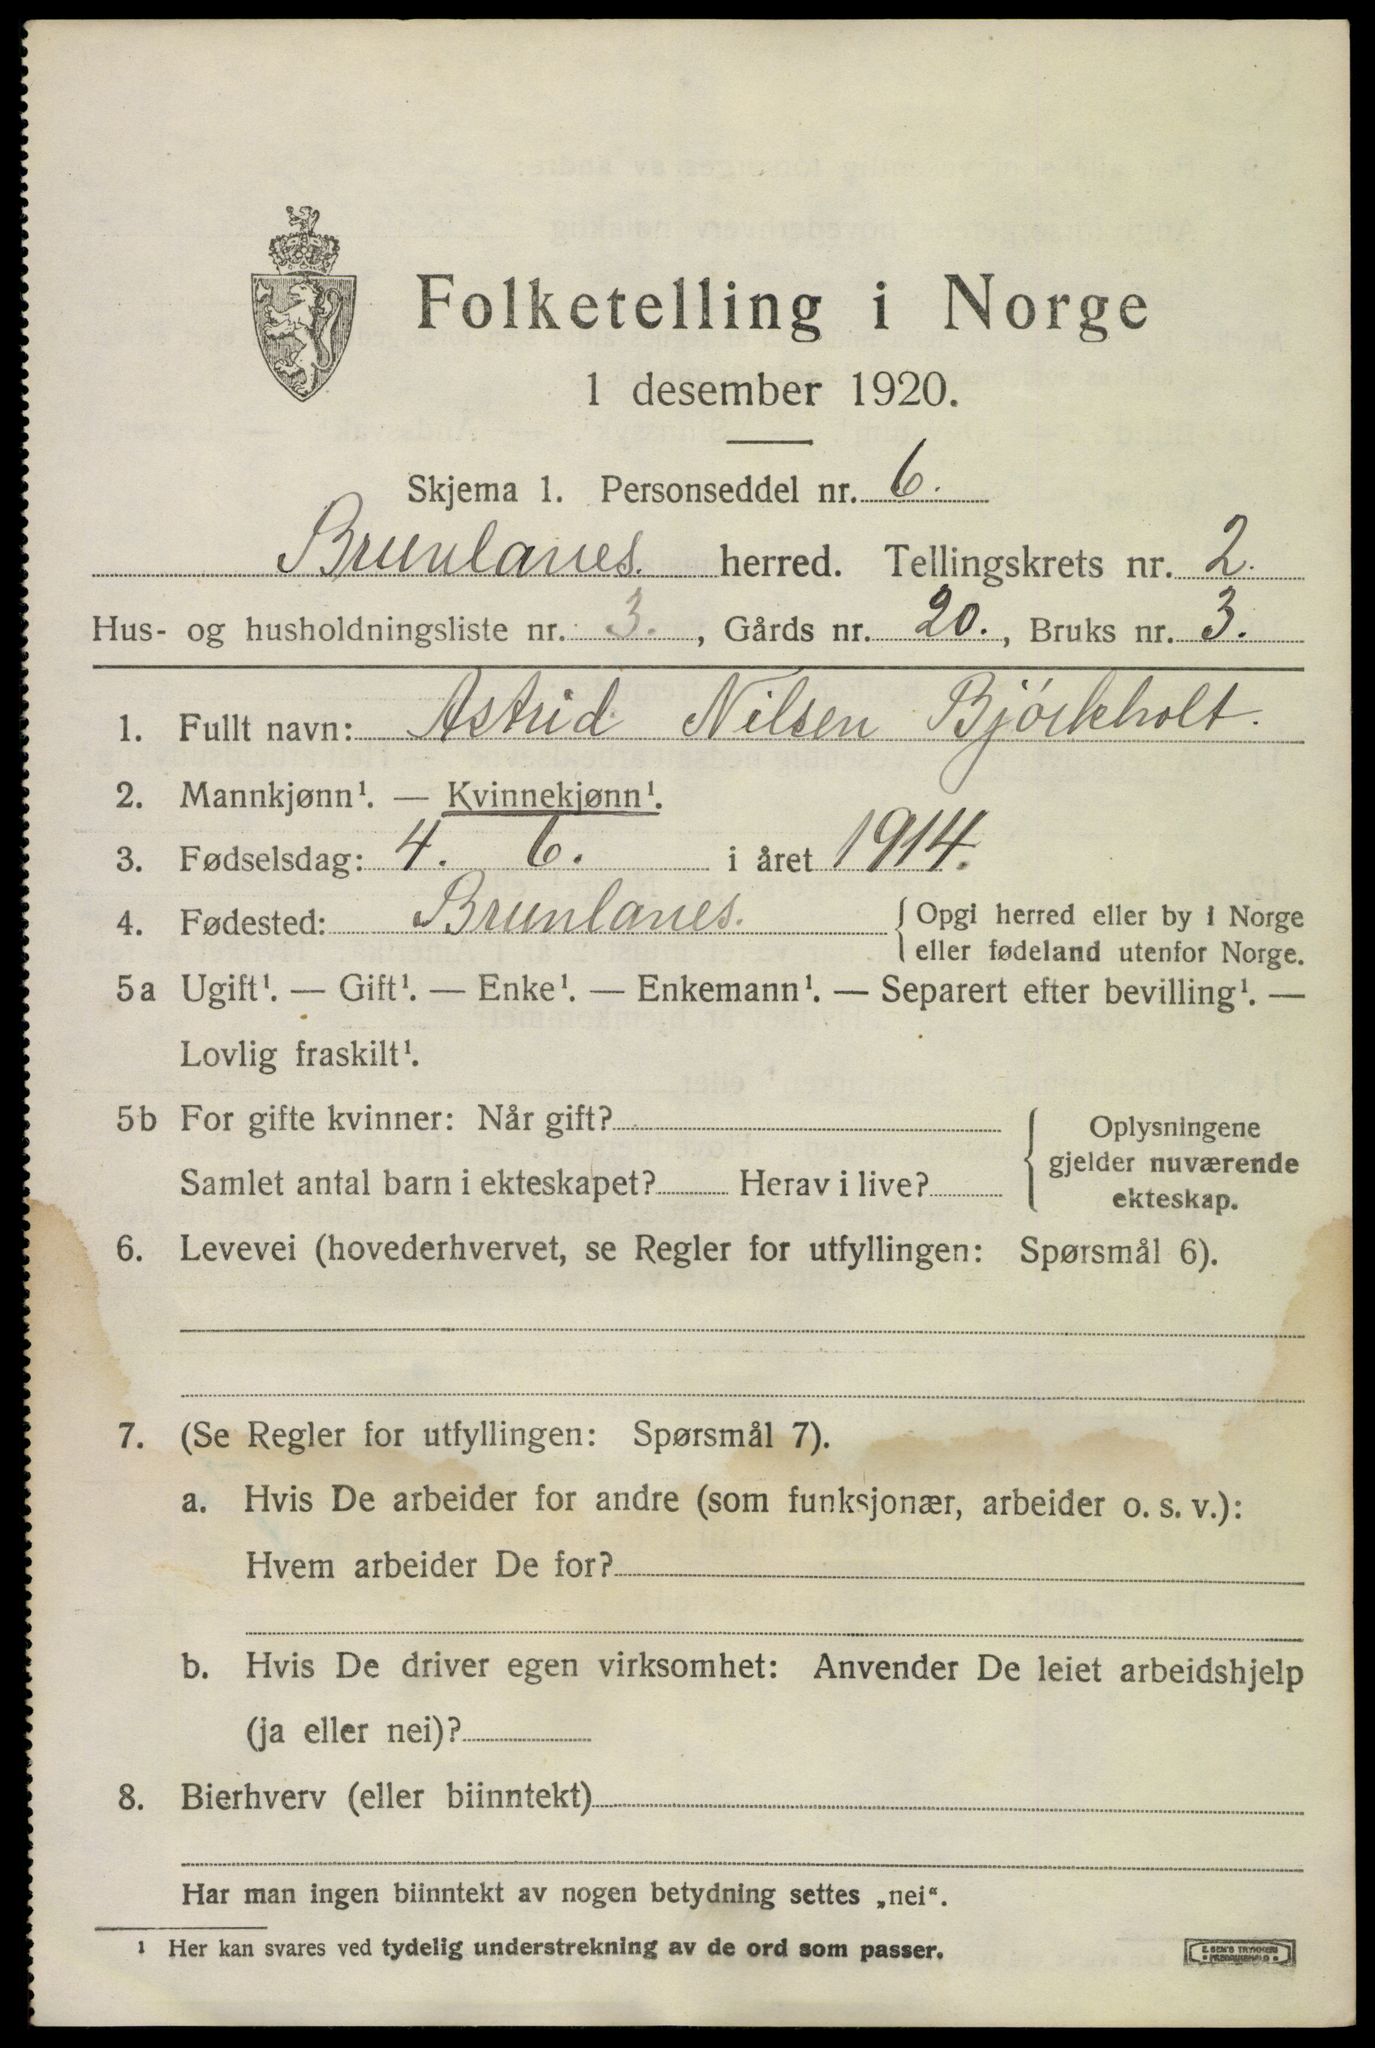 Folketelling i Norge
1 desember 1920.
Skjema 1. Personseddel nr. 6.
Brunlanes. herred. Tellingskrets nr. 2.
Hus- og husholdningsliste nr. 3., Gårds nr. 20., Bruks nr. 3.
1. Fullt navn: Astrid Nilsen Bjørkholt.
2. Mannkjønn¹. — Kvinnekjønn¹.
3. Fødselsdag: 4. 6. i året 1914.
4. Fødested: Brunlanes. { Opgi herred eller by i Norge
eller fødeland utenfor Norge.
5a Ugift¹. — Gift¹. — Enke¹. — Enkemann¹. — Separert efter bevilling¹. —
Lovlig fraskilt¹.
5b For gifte kvinner: Når gift?
Samlet antal barn i ekteskapet? Herav i live?
{ Oplysningene
gjelder nuværende
ekteskap.
6. Levevei (hovederhvervet, se Regler for utfyllingen: Spørsmål 6).
7. (Se Regler for utfyllingen: Spørsmål 7).
a. Hvis De arbeider for andre (som funksjonær, arbeider o. s. v.):
Hvem arbeider De for?
b. Hvis De driver egen virksomhet: Anvender De leiet arbeidshjelp
(ja eller nei)?
8. Bierhverv (eller biinntekt)
Har man ingen biinntekt av nogen betydning settes „nei“.
¹ Her kan svares ved tydelig understrekning av de ord som passer.